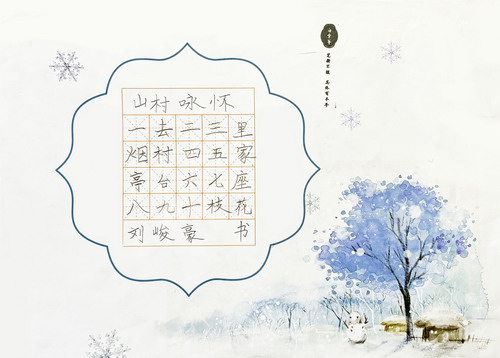 山村咏怀
一去二三里
烟村四五家
亭台六七座
八九十枝花
刘峻豪 书